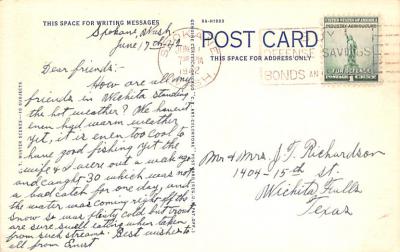 THIS SPACE FOR WRITING MESSAGES
Spokane, Wash
June 17
Dear friends:-
How are all my
friends in Wichita standing
the hot weather? We haven't
even had warm weather
yet, it is even too cool to
have good fishing yet the
wife & I were out a
and caught 30 which was not
a bad catch for one day, and
the water was coming right off the
snow so was plenty cold but trout
are sure swell eating when taken
from such streams. Best wishes to
all from
5A-H1933
POST CARD
THIS SPACE FOR ADDRESS ONLY
SPOKANE
JUN
1942
WASH
DEFENSE SAVINGS
BONDS AN
UNITED STATES OF AMERICA
INDUSTRY-AGRICULTURE
FOR DEFENSE
1 CENT
Mr & Mrs J. T. Richardson
1404-15th St.
Wichita Falls
Texas